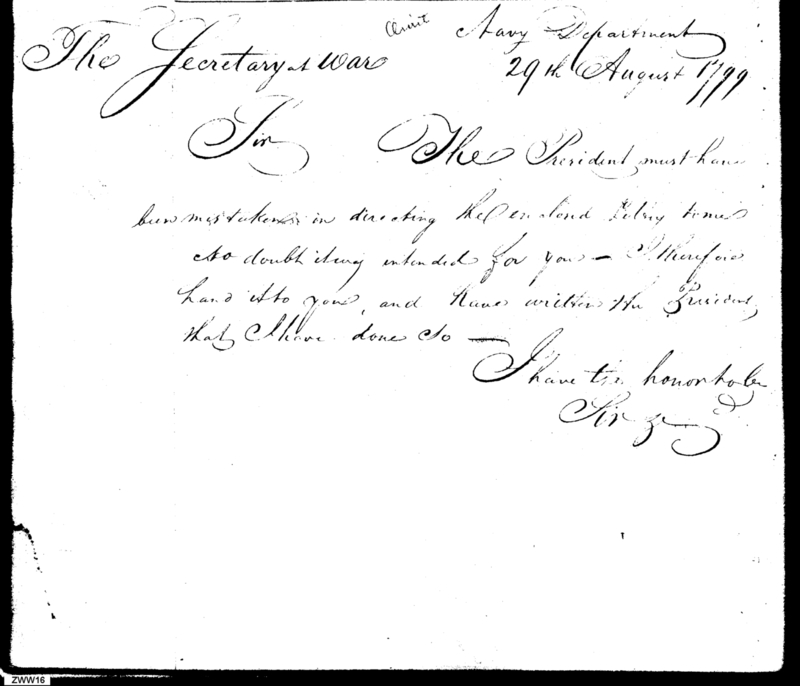 Omit Navy Department
The Secretary at War 29th August 1799
Sir The President must have
been mistaken in directing the enclosd to me
No doubt it was intended for you — I therefore
hand it to you, and have written the President
that I have done so —
I have the honor to be
Sir &c
ZWW16